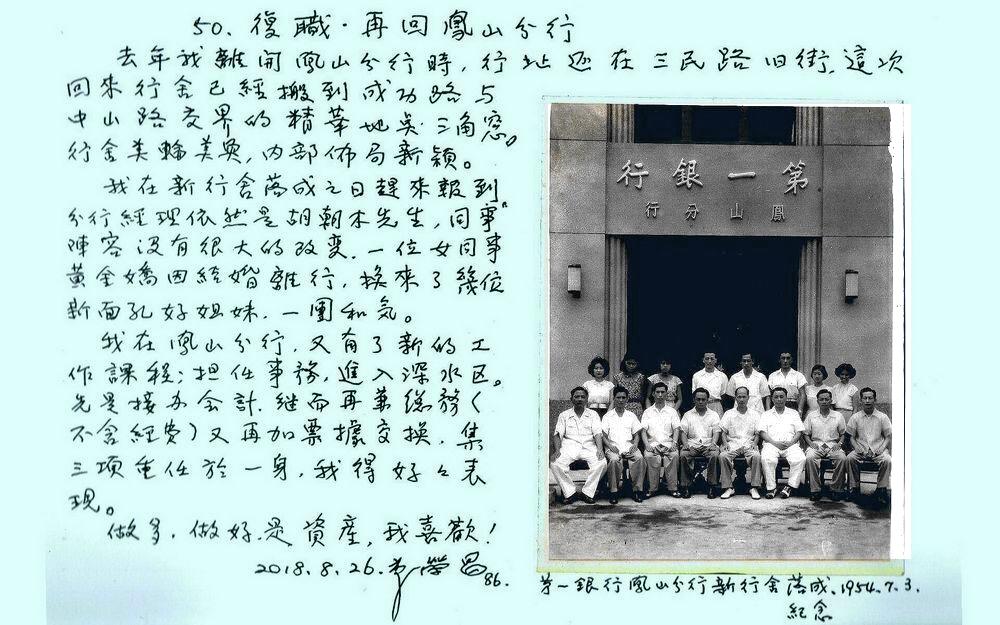 50. 復職·再回鳳山分行
去年我離開鳳山分行時,行址还在三民路旧街,這次
回來行舍已經搬到成功路与
中山路交界的精華地吳三角窓。
行舍美輪美奐,內部佈局新穎。
我在新行舍落成之日趕來報到
分行經理依然是胡朝木先生,同事
陣容沒有很大的改变.一位女同事
黃金嬌因結婚離行,換來了幾位
新面孔好姐妹.一團和氣。
我在鳳山分行,又有了新的工
作課程;担任事務,進入深水区。
先是接办会計.継而再兼総務(
不含經费)又再加票據交換,集
三項重任於一身,我得好々表
現。
做多.做好.是資産,我喜歡!
2018.8.26. 榮昌 86.
第一銀行
鳳山分行
第一銀行鳳山分行新行舍落成.1954.7.3.
紀念